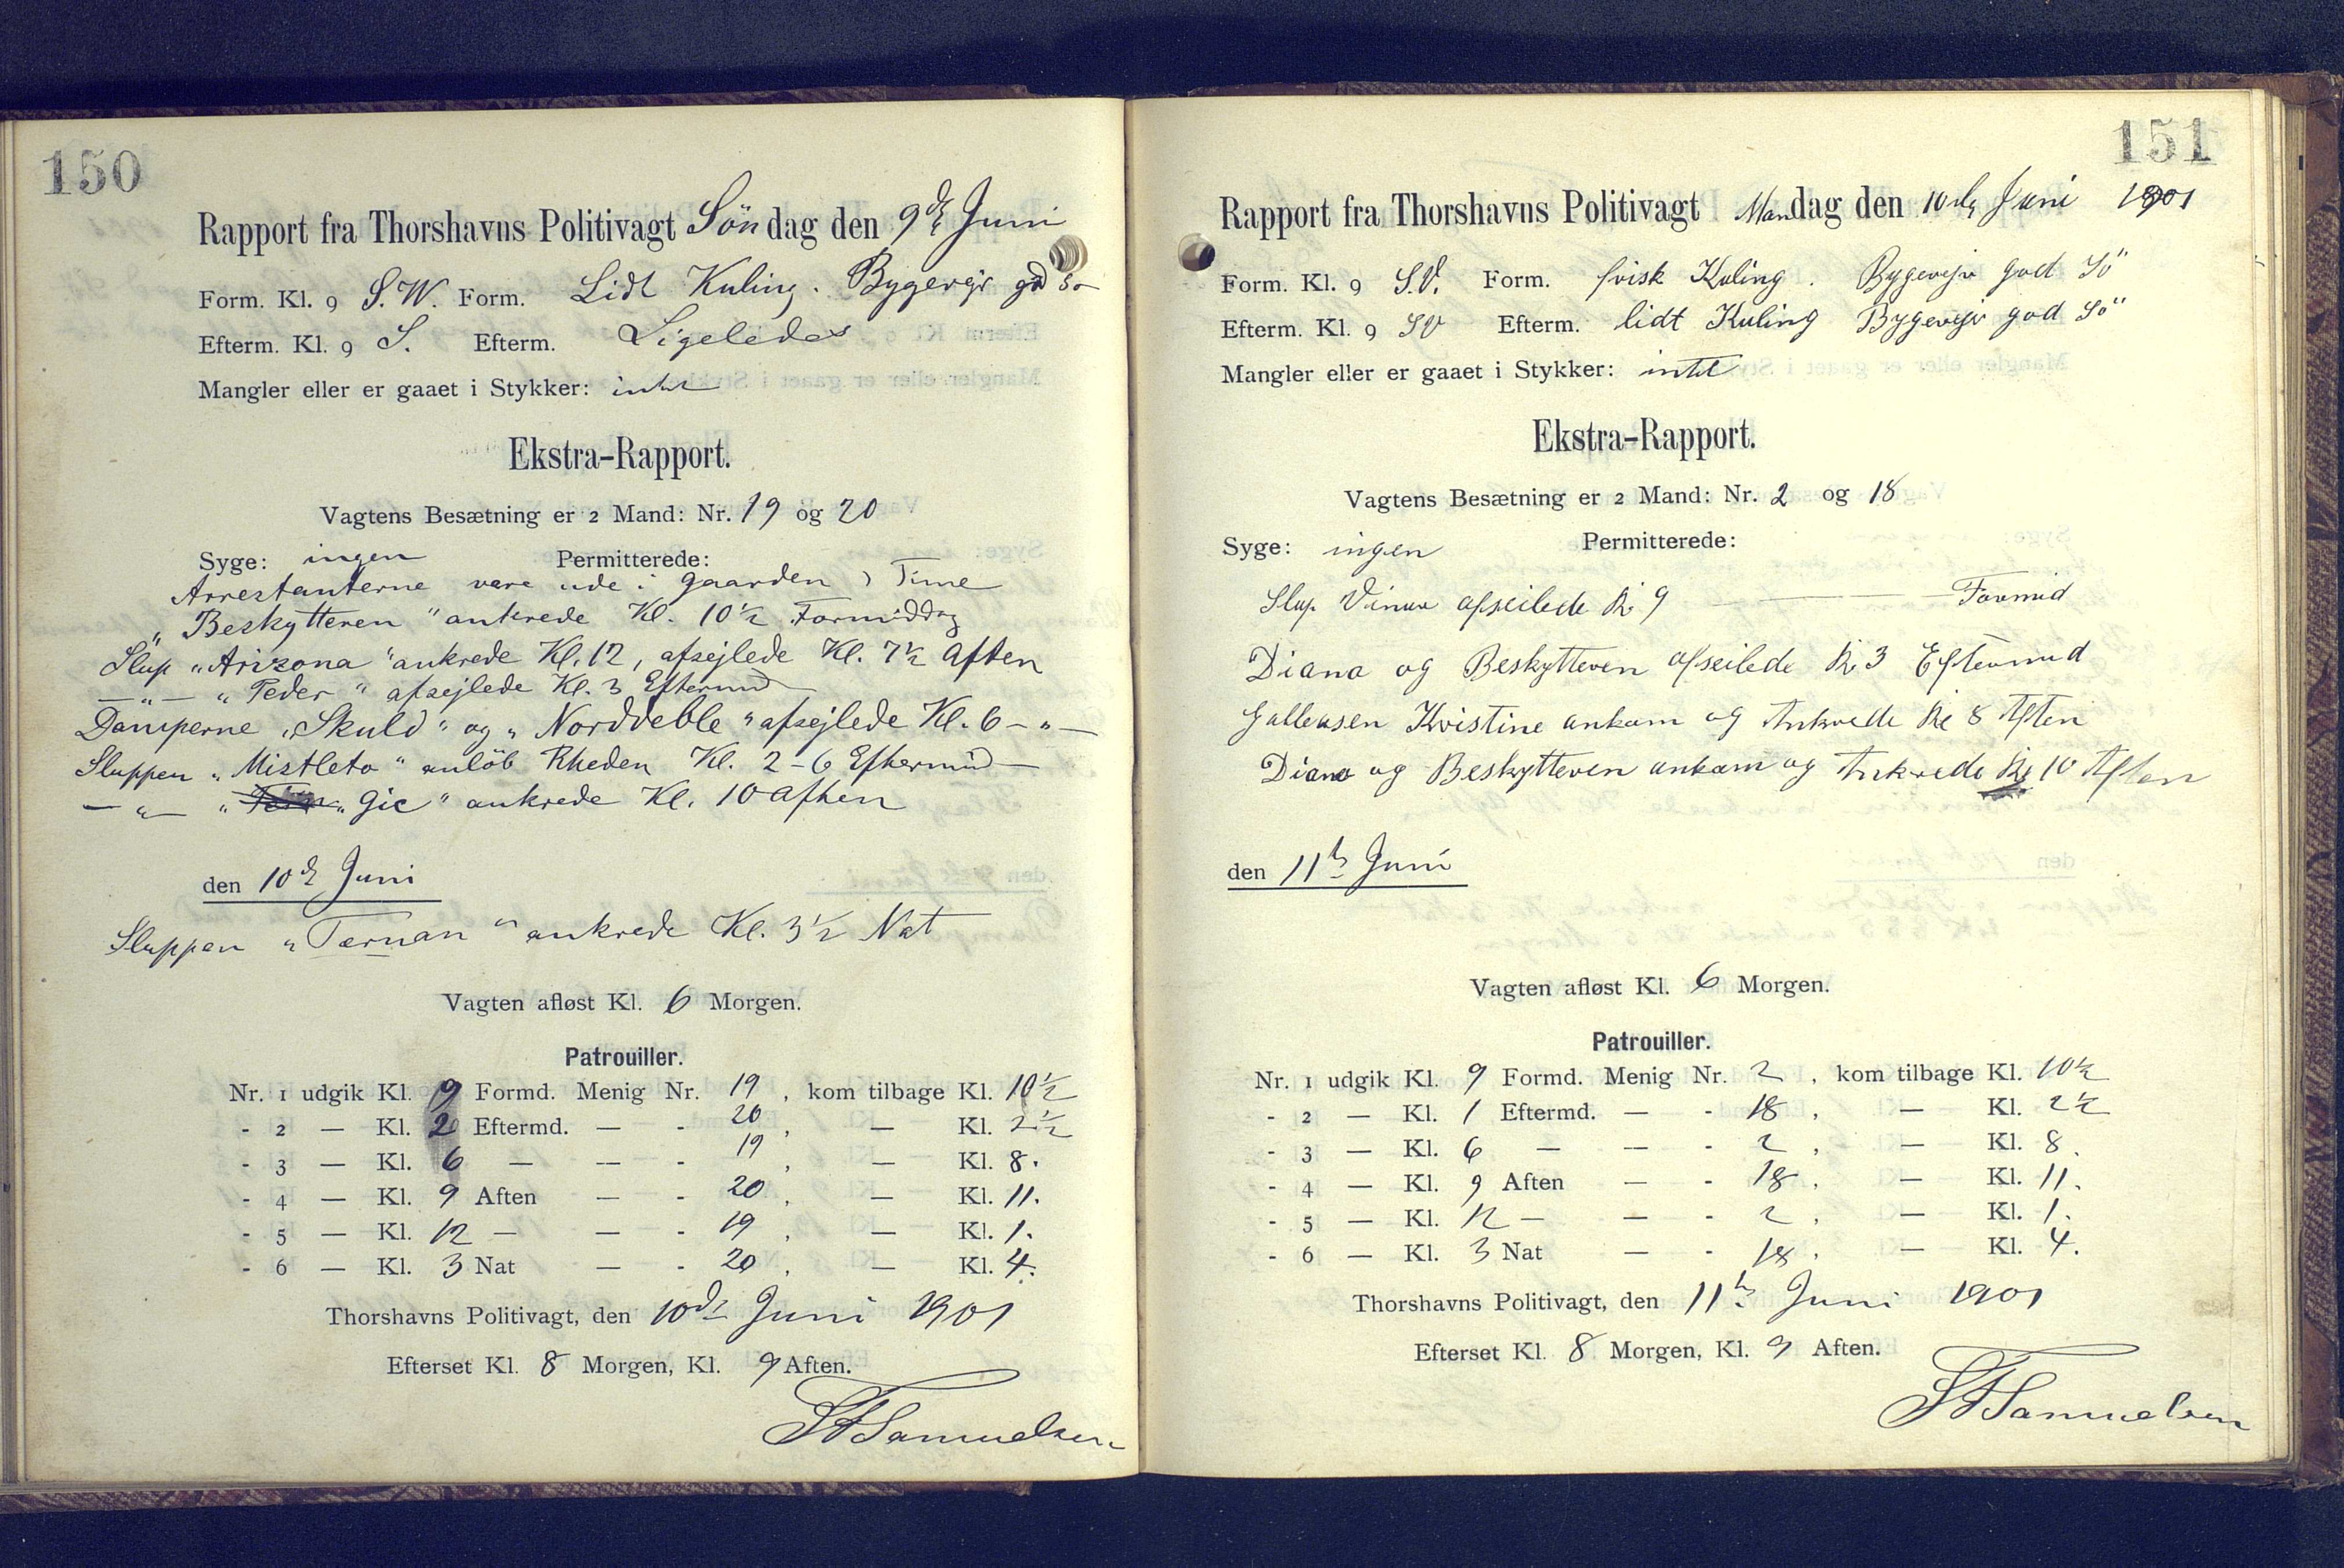 150
Rapport fra Thorshavns Politivagt Søndag den 9de Juni
Form. Kl. 9 S.W. Form. Lidt Kuling. Bygevejr god Sø
Efterm. Kl. 9 S. Efterm. Ligeledes
Mangler eller er gaaet i Stykker: intet
Ekstra-Rapport.
Vagtens Besætning er 2 Mand: Nr. 19 og 20
Syge: ingen Permitterede:
Arrestanterne vare ude i gaarden 1 Time
„Beskytteren" ankrede Kl. 10½ Formiddag
Slup „Arizona" ankrede Kl. 12, afsejlede Kl. 7½ Aften
—„— „Peder" afsejlede Kl. 3 Eftermid
Damperne „Skuld" og „Norddeble" afsejlede Kl. 6 —„—
Sluppen „Mistleto" anlöb Rheden Kl. 2-6 Eftermid
—„— „Gie" ankrede Kl. 10 Aften
den 10de Juni
Sluppen „Ternan" ankrede Kl. 3½ Nat
Vagten afløst Kl. 6 Morgen.
Patrouiller.
Nr. 1 udgik Kl. 9 Formd. Menig Nr. 19, kom tilbage Kl. 10½
- 2 — Kl. 2 Eftermd. — - 20, — Kl. 2½
- 3 — Kl. 6 — — - 19, — Kl. 8.
- 4 — Kl. 9 Aften — - 20, — Kl. 11.
- 5 — Kl. 12 — — - 19, — Kl. 1.
- 6 — Kl. 3 Nat — - 20, — Kl. 4.
Thorshavns Politivagt, den 10de Juni 1901
Efterset Kl. 8 Morgen, Kl. 9 Aften.
SFSamuelsen
151
Rapport fra Thorshavns Politivagt Mandag den 10de Juni 1901
Form. Kl. 9 S.V. Form. frisk Kuling. Bygevejr god Sö
Efterm. Kl. 9 SV Efterm. lidt Kuling Bygevejr god Sö
Mangler eller er gaaet i Stykker: intet
Ekstra-Rapport.
Vagtens Besætning er 2 Mand: Nr. 2 og 18
Syge: ingen Permitterede:
Slup afseilede Kl 9 — Formid
Diana og Beskytteren afseilede Kl 3 Eftermid
Galleasen Kristine ankom og Ankrede Kl 8 Aften
Diana og Beskytteren ankom og Ankrede Kl 10 Aften
den 11te Juni
Vagten afløst Kl. 6 Morgen.
Patrouiller.
Nr. 1 udgik Kl. 9 Formd. Menig Nr. 2, kom tilbage Kl. 10½
- 2 — Kl. 1 Eftermd. — - 18, — Kl. 2½
- 3 — Kl. 6 — — - 2, — Kl. 8.
- 4 — Kl. 9 Aften — - 18, — Kl. 11.
- 5 — Kl. 12 — — - 2, — Kl. 1.
- 6 — Kl. 3 Nat — - 18, — Kl. 4.
Thorshavns Politivagt, den 11te Juni 1901
Efterset Kl. 8 Morgen, Kl. 9 Aften.
SFSamuelsen